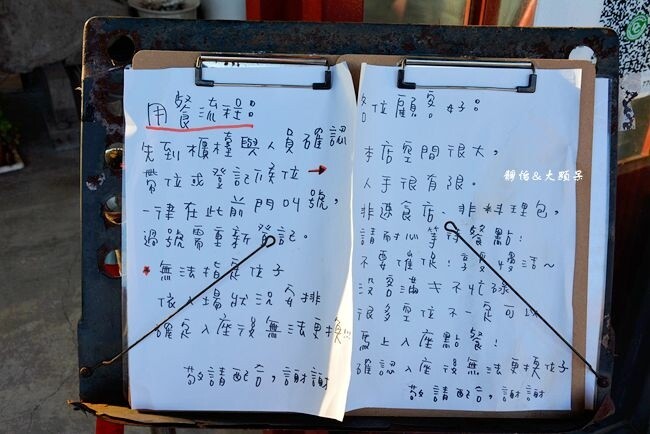 用餐流程:
先到櫃檯與人員確認
帶位或登記候位→
一律在此前門叫號,
過號需重新登記。
*無法指定位子
依入場狀況安排
確定入座後無法更換!!!
敬請配合,謝謝
各位顧客好:
本店空間很大,
人手很有限。
非速食店、非料理包,
請耐心等待餐點!
不要催促!享受慢活~
沒客滿才不忙碌
很多空位不一定可以
馬上入座點餐!
確認入座後無法更換位子
敬請配合,謝謝
靜怡&大顆呆